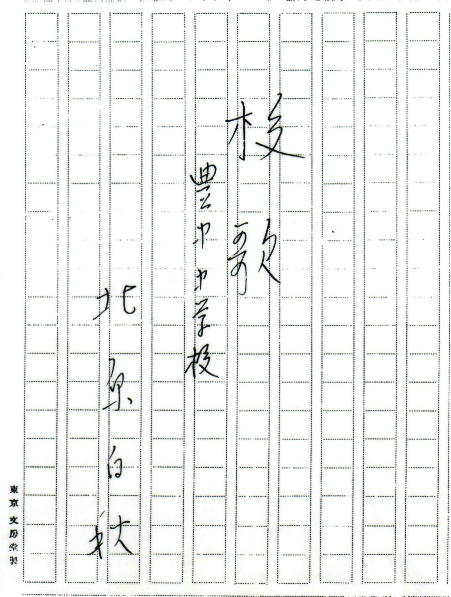 校歌
豊中中学校
北原白秋
東京文房堂製